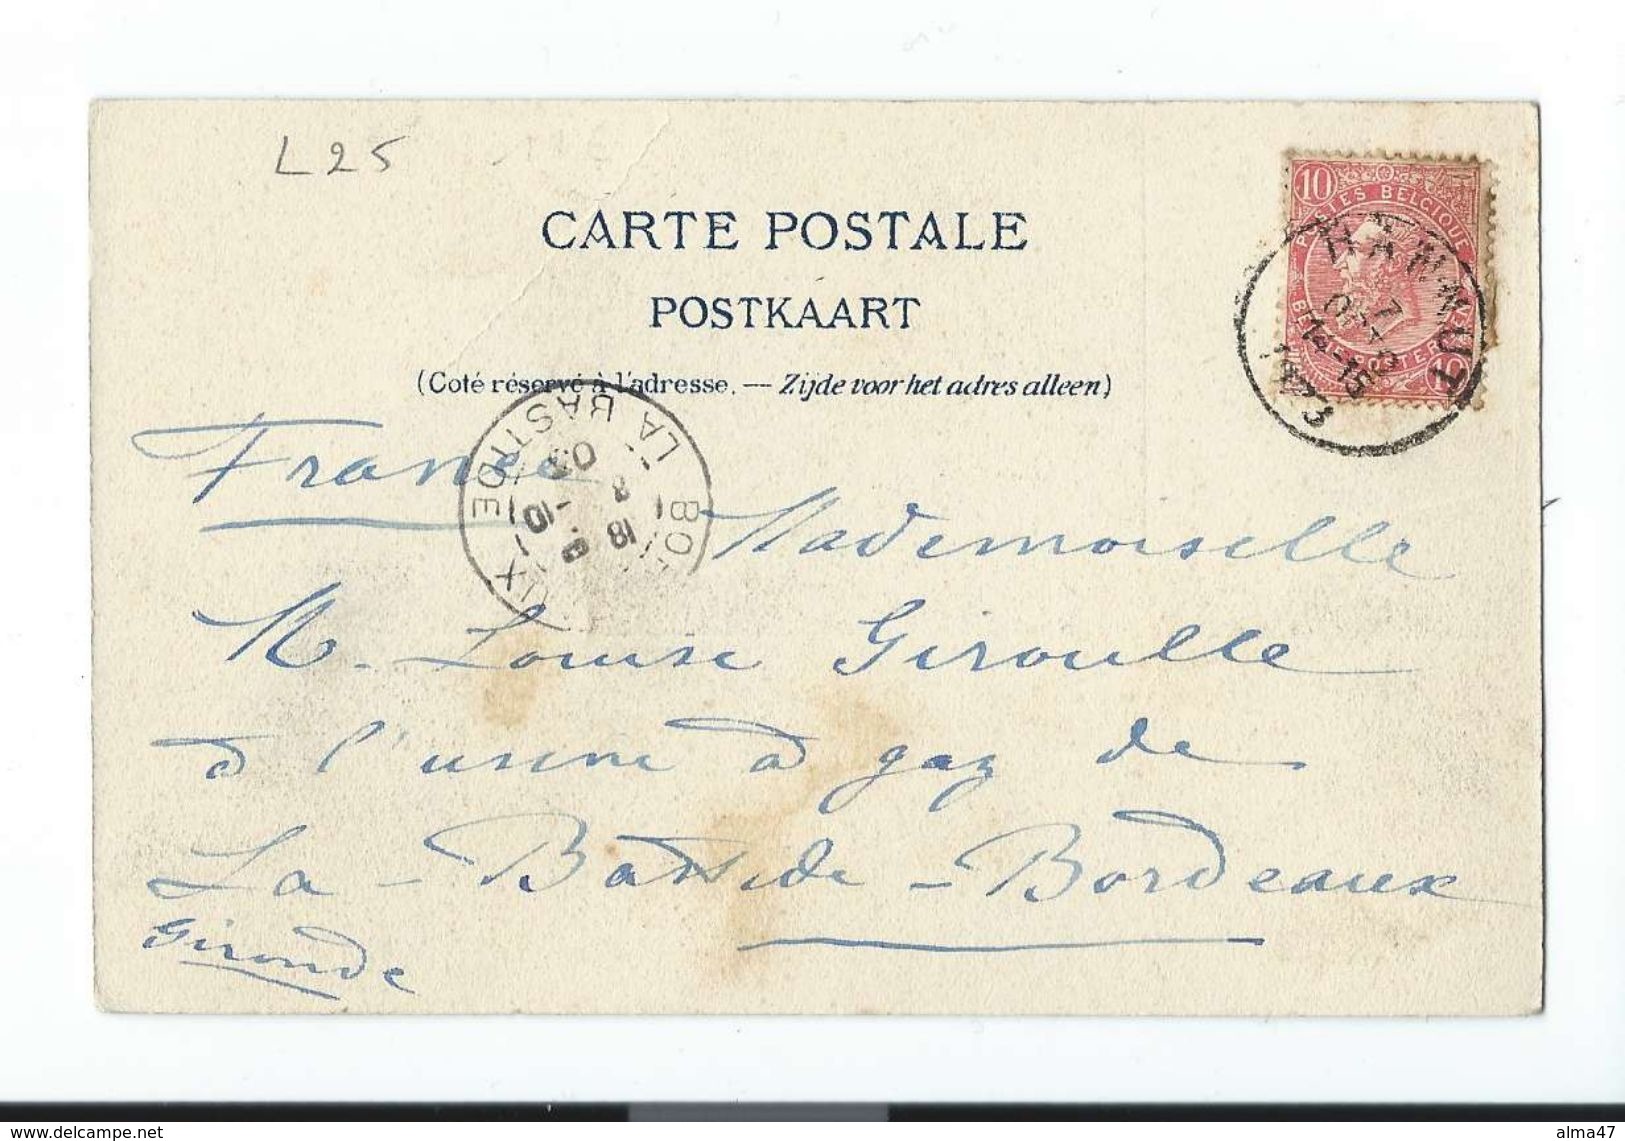 L25
CARTE POSTALE
POSTKAART
(Coté réservé à l'adresse. — Zijde voor het adres alleen)
10 10
POSTES BELGIQUE
14-15
1903
LA BASTIDE
03
France
Mademoiselle
M. Louise Giroulle
à l'usine à gaz de
La - Bastide - Bordeaux
Gironde
delcampe.net
alma47